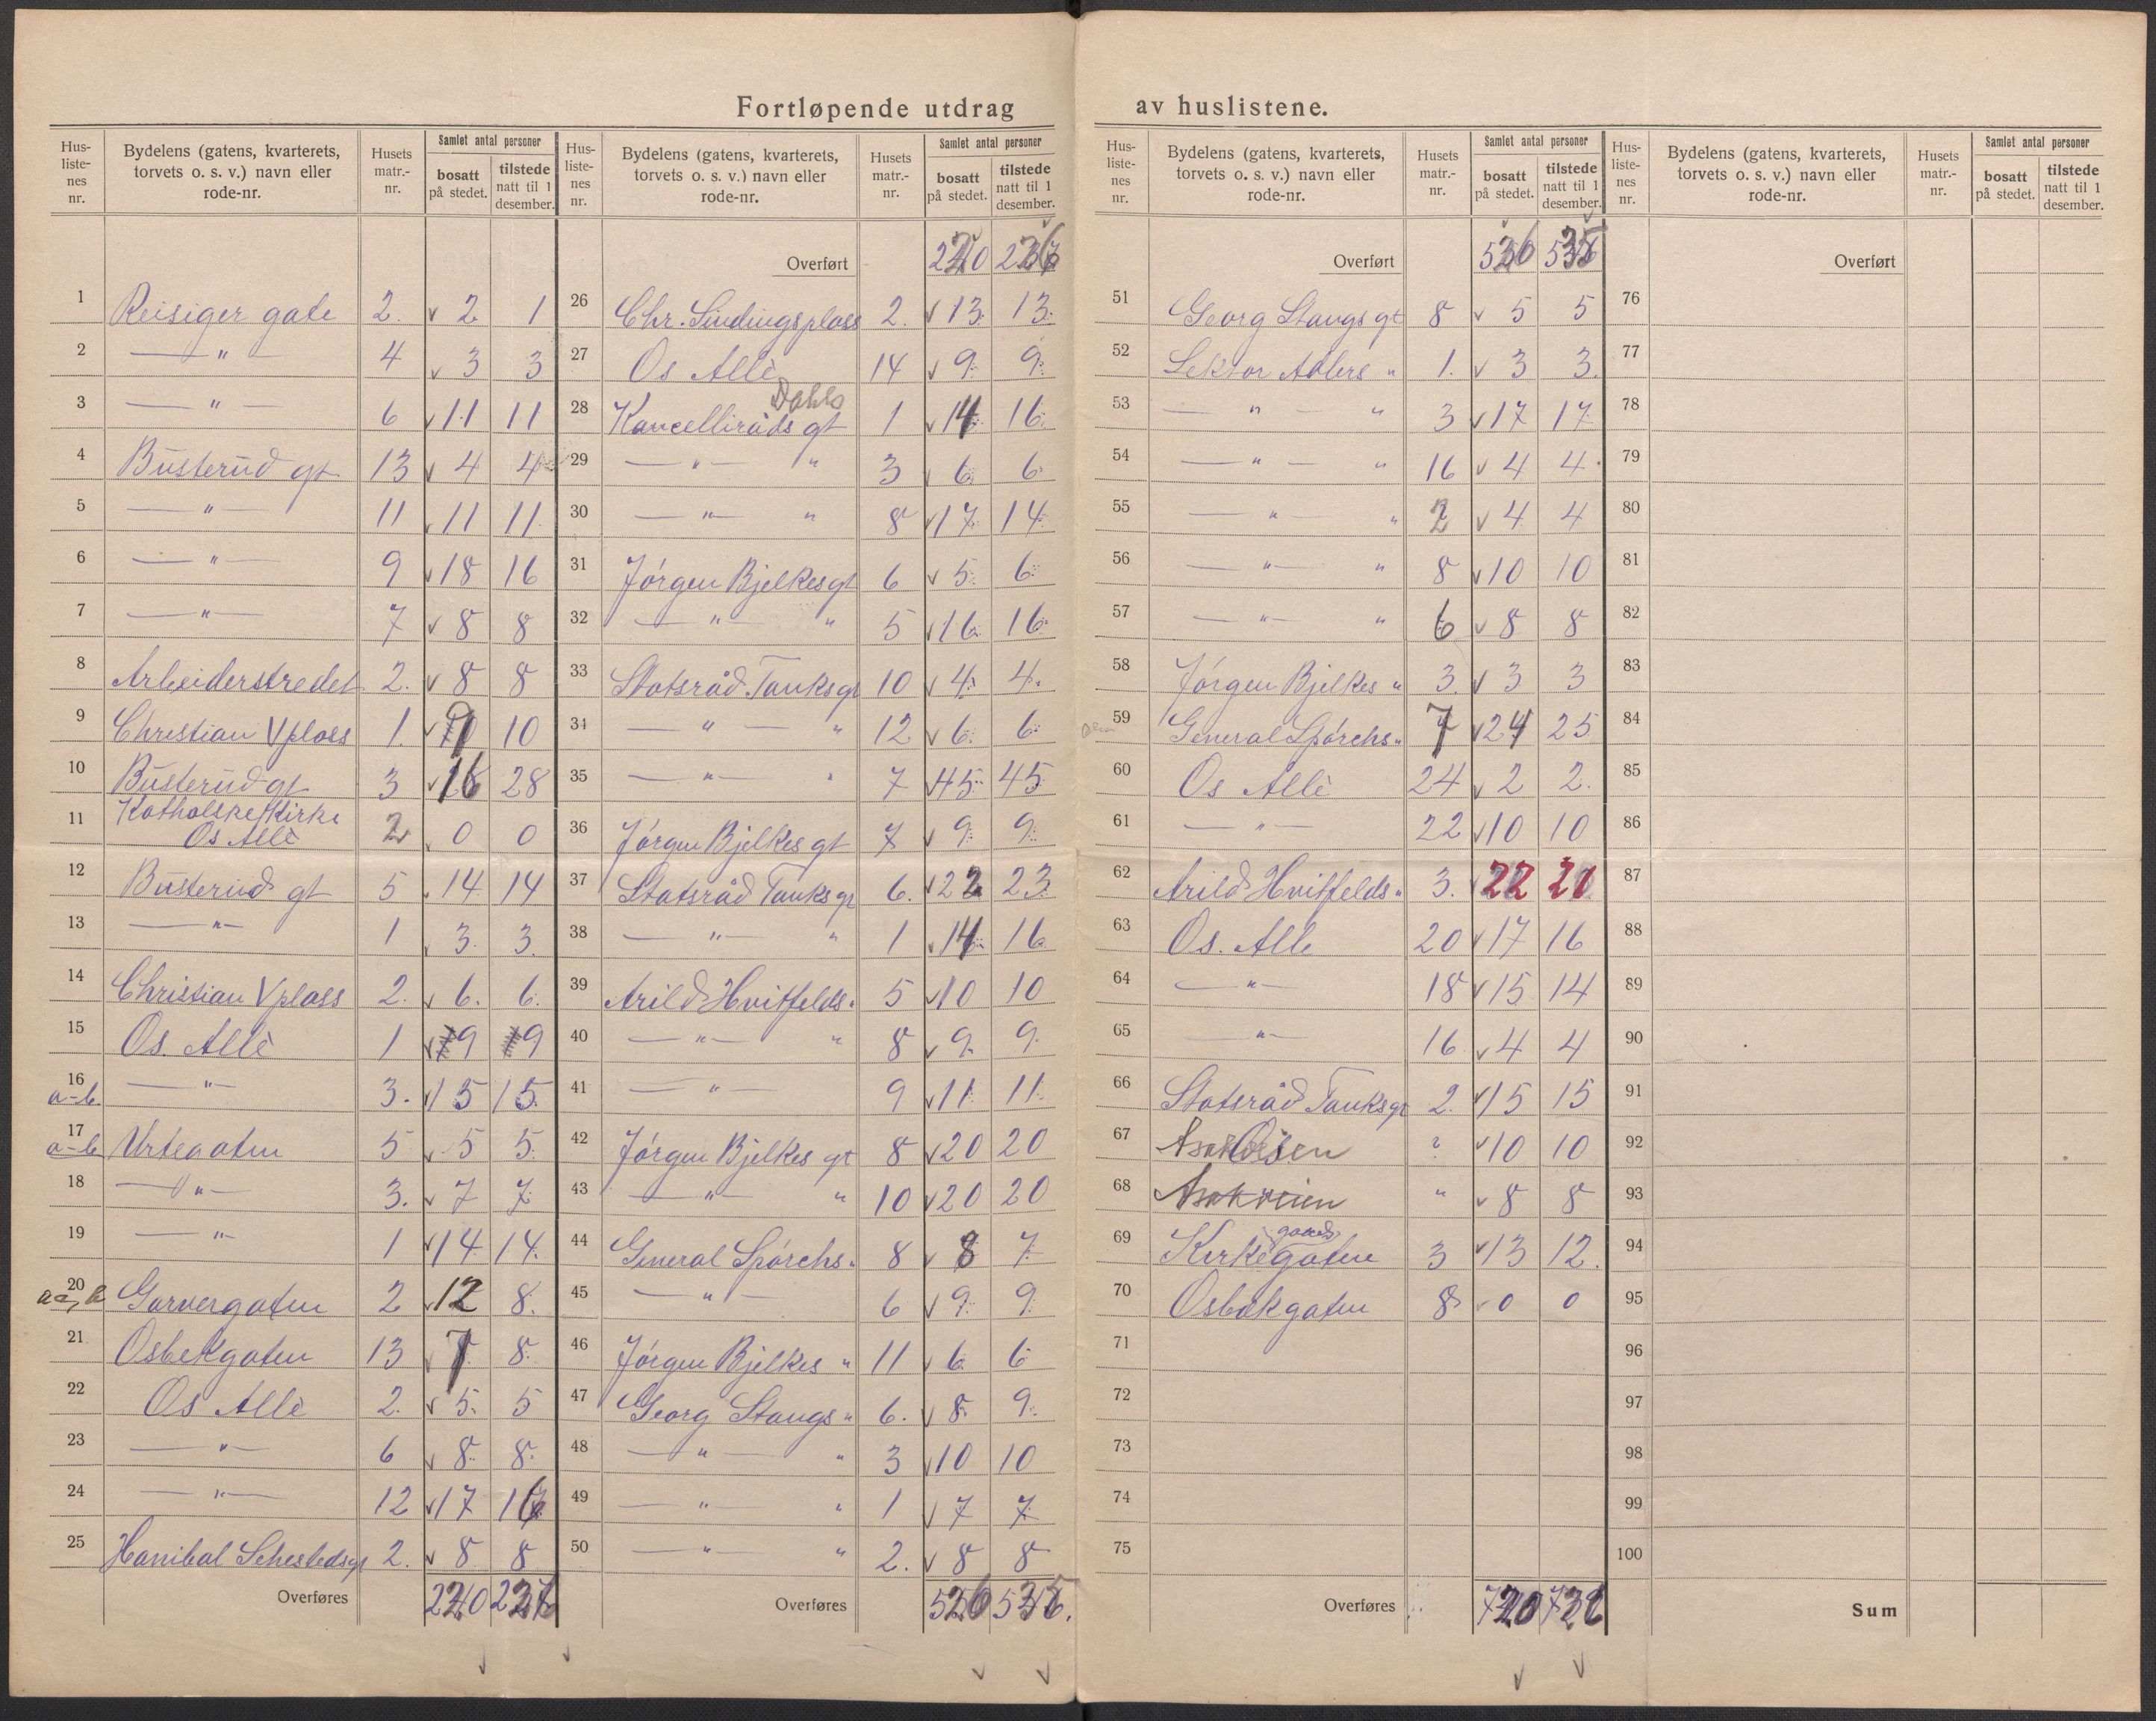 Fortløpende utdrag av huslistene.
Hus-listenes nr. Bydelens (gatens, kvarterets, torvets o. s. v.) navn eller rode-nr. Husets matr.-nr. Samlet antal personer bosatt på stedet. tilstede natt til 1 desember.
1 Reisiger gate 2. 2 1
2 — " — 4 3 3
3 — " — 6 11 11
4 Busterud gt 13 4 4
5 — " — 11 11 11
6 — " — 9 18 16
7 — " — 7 8 8
8 Arbeiderstredet 2. 8 8
9 Christian V plass 1. 10
10 Busterud gt 3 16 28
11 Katholske Kirke
Os Allè 2 0 0
12 Busterud gt 5 14 14
13 — " — 1 3. 3.
14 Christian V plass 2. 6. 6.
15 Os. Allè 1 9 9
16 a-b. — " — 3. 15 15.
17 a-b Urtegaten 5 5 5.
18 — " — 3. 7 7.
19 — " — 1 14 14.
20 Garvergaten 2 12 8.
21 Osbekgaten 13 7 8.
22 Os Allè 2. 5. 5
23 — " — 6 8. 8.
24 — " — 12 17 16
25 Hanibal Sehestedsgt 2. 8 8
Overføres
Hus-listenes nr. Bydelens (gatens, kvarterets, torvets o. s. v.) navn eller rode-nr. Husets matr.-nr. Samlet antal personer bosatt på stedet. tilstede natt til 1 desember.
Overført
26 Chr. Sindings plass 2. 13. 13.
27 Os Allè 14 9. 9.
28 Kancelliråds Dahls gt 1 14 16.
29 — " — " 3 6. 6.
30 — " — " 8 17. 14.
31 Jörgen Bjelkes gt 6 5. 6.
32 — " — " 5 16. 16.
33 Statsråd Tanks gt 10 4. 4.
34 — " — " 12 6. 6.
35 — " — " 7 45. 45.
36 Jörgen Bjelkes gt 7 9. 9.
37 Statsråd Tanks gt 6. 22 23.
38 — " — " 1 14. 16
39 Arild Hvitfelds " 5 10 10
40 — " — " 8 9. 9.
41 — " — 9 11. 11.
42 Jörgen Bjelkes gt 8 20 20
43 — " — " 10 20 20
44 General Spörchs " 8 8 7.
45 — " — 6 9. 9.
46 Jörgen Bjelkes " 11 6 6
47 Georg Stangs " 6. 8. 9.
48 — " — " 3 10 10
49 — " — " 1 7 7
50 — " — " 2. 8 8
Overføres
Hus-listenes nr. Bydelens (gatens, kvarterets, torvets o. s. v.) navn eller rode-nr. Husets matr.-nr. Samlet antal personer bosatt på stedet. tilstede natt til 1 desember.
Overført
51 Georg Stangs gt 8 5 5
52 Lektor Adlers " 1. 3 3.
53 — " — " 3 17 17.
54 — " — " 16 4 4.
55 — " — " 2 4 4
56 — " — " 8 10 10
57 — " — " 6 8 8
58 Jörgen Bjelkes " 3. 3 3
59 General Spörchs " 7 24 25
60 Os Allè 24 2 2.
61 — " — 22 10 10
62 Arild Hvitfelds " 3. 22 20
63 Os. Alle 20 17 16
64 — " — 18 15 14
65 — " — 16 4 4
66 Statsråd Tanks gt 2. 15 15
67 10 10
68 Asakveien " 8 8
69 Kirkegaards gaten 3 13 12.
70 Osbakgaten 8 0 0
71
72
73
74
75
Overføres
Hus-listenes nr. Bydelens (gatens, kvarterets, torvets o. s. v.) navn eller rode-nr. Husets matr.-nr. Samlet antal personer bosatt på stedet. tilstede natt til 1 desember.
Overført
76
77
78
79
80
81
82
83
84
85
86
87
88
89
90
91
92
93
94
95
96
97
98
99
100
Sum